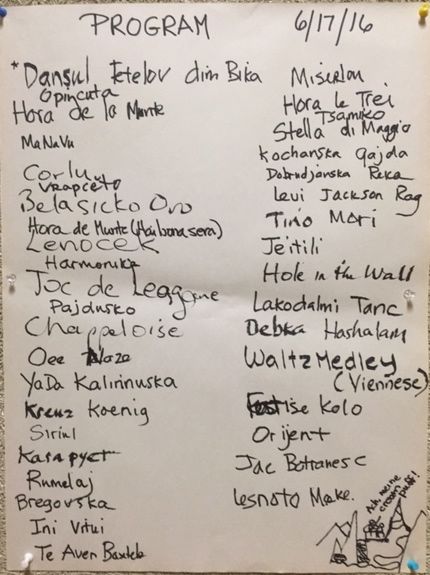 PROGRAM 6/17/16
*Dansul Fetelov dim Bika
Opincuta
Hora de la Munte
MaNaVu
Corlu
Vrapceto
Belasicko Oro
Hora de Munte (Haibonasera)
Lenocek
Harmonika
Joc de Leagane
Pajdusko
Chappeloise
Oee
YaDa Kalirinuska
Kreuz Koenig
Siriul
Карапует
Rumelaj
Bregovska
Ini Vitui
Te Aven Baxtele
Miserlou
Hora le Trei
Tsamiko
Stella di Maggio
Kochanska Gajda
Dobrudjanska Reka
Levi Jackson Rag
Tino Mori
Jeitili
Hole in the Wall
Lakodalmi Tanc
Debka Hashalam
Waltz Medley
(Viennese)
Kolo
Orijent
Joc Botranesc
Lesnoto Make.
Ach, meine
creampuff!